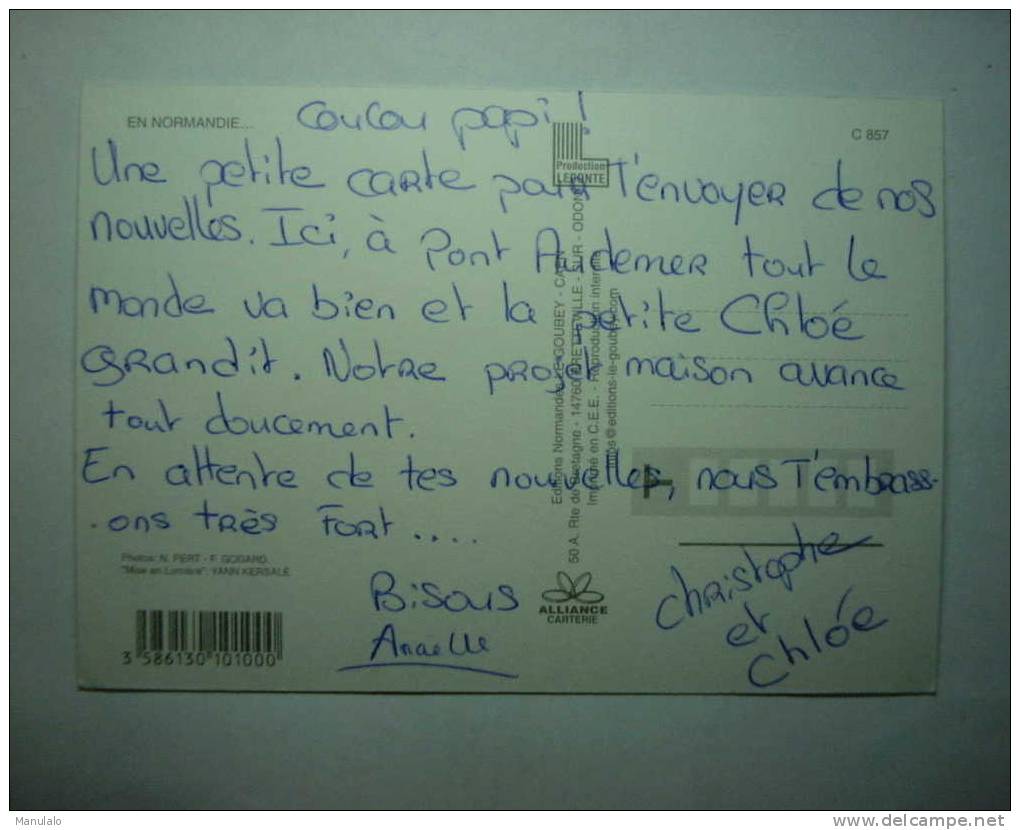 EN NORMANDIE...
Coucou papi !
C 857
Production
LECONTE
Une petite carte pour T'envoyer de nos
nouvelles. Ici, à Pont Audemer tout le
monde va bien et la petite Chloé
grandit. Notre projet maison avance
tout doucement.
En attente de tes nouvelles, nous T'embrass-
-ons très Fort ....
Photos: N. PERT - F. GODARD
"Mise en Lumière": YANN KERSALÉ
Bisous
Anaelle
Christophe
et
Chloé
Editions Normandes LE GOUBEY - CAEN
50 A. Rte de Bretagne - 14760 BRETTEVILLE - SUR - ODON
Imprimé en C.E.E. - Reproduction interdite
infos@editions-le-goubey.com
ALLIANCE
CARTERIE
3 586130 101000
Manulalo
delcampe.net